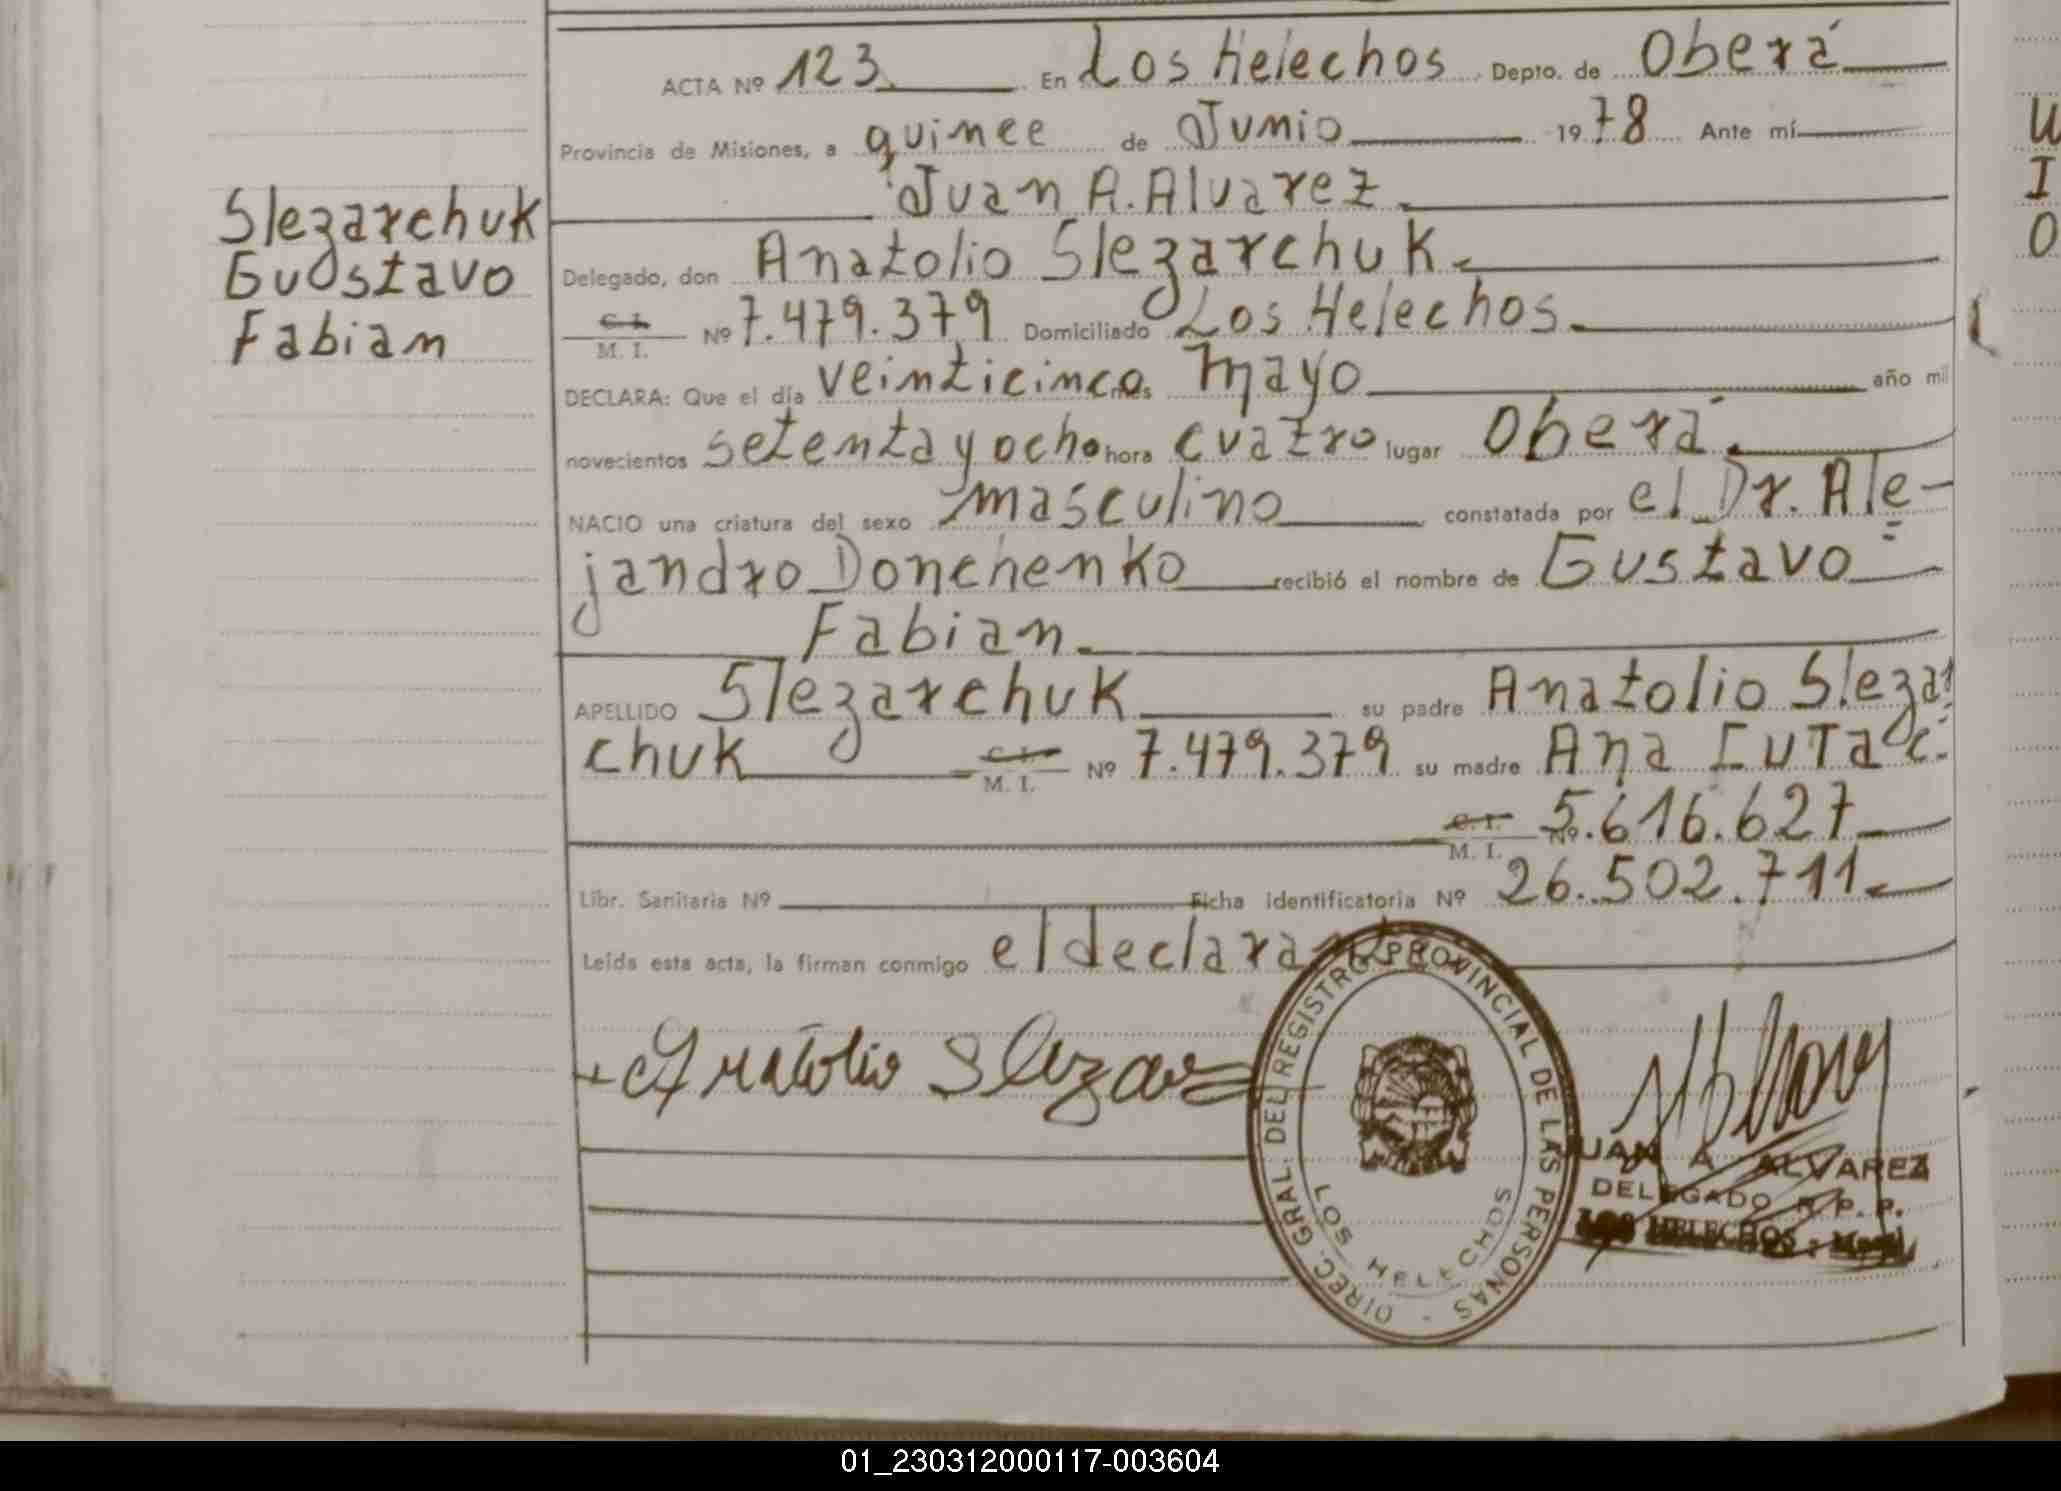 ACTA Nº 123 En Los Helechos Depto. de Oberá
Provincia de Misiones, a quince de Junio 1978 Ante mí
Juan A. Alvarez.
Slezarchuk
Gustavo
Fabian
Delegado, don Anatolio Slezarchuk.
C. I.
M. I. Nº 7.479.379 Domiciliado Los Helechos.
DECLARA: Que el día veinticinco mes Mayo año mil
novecientos setenta y ocho hora cuatro lugar Oberá.
NACIO una criatura del sexo masculino constatada por el Dr. Ale-
jandro Donchenko recibió el nombre de Gustavo
Fabian.
APELLIDO Slezarchuk su padre Anatolio Slezar
chuk C. I.
M. I. Nº 7.479.379 su madre Ana
C. I.
M. I. Nº 5.616.627
Libr. Sanitaria Nº Ficha identificatoria Nº 26.502.711.
Leída esta acta, la firman conmigo el declarante
Anatolio Slezar
DIREC. GRAL. DEL REGISTRO PROVINCIAL DE LAS PERSONAS -
LOS HELECHOS
JUAN A ALVAREZ
DELEGADO R. P. P.
LOS HELECHOS
W
I
O
01_230312000117-003604